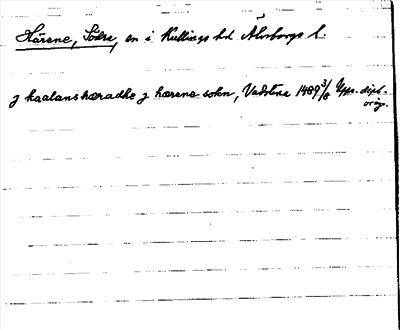 Härene, Södra, sn i Kullings hd Älvsborgs l.
j kaalanshæradhe j hærene sokn, Vadstena 1489 3/8 Upps. dipl.
orig.